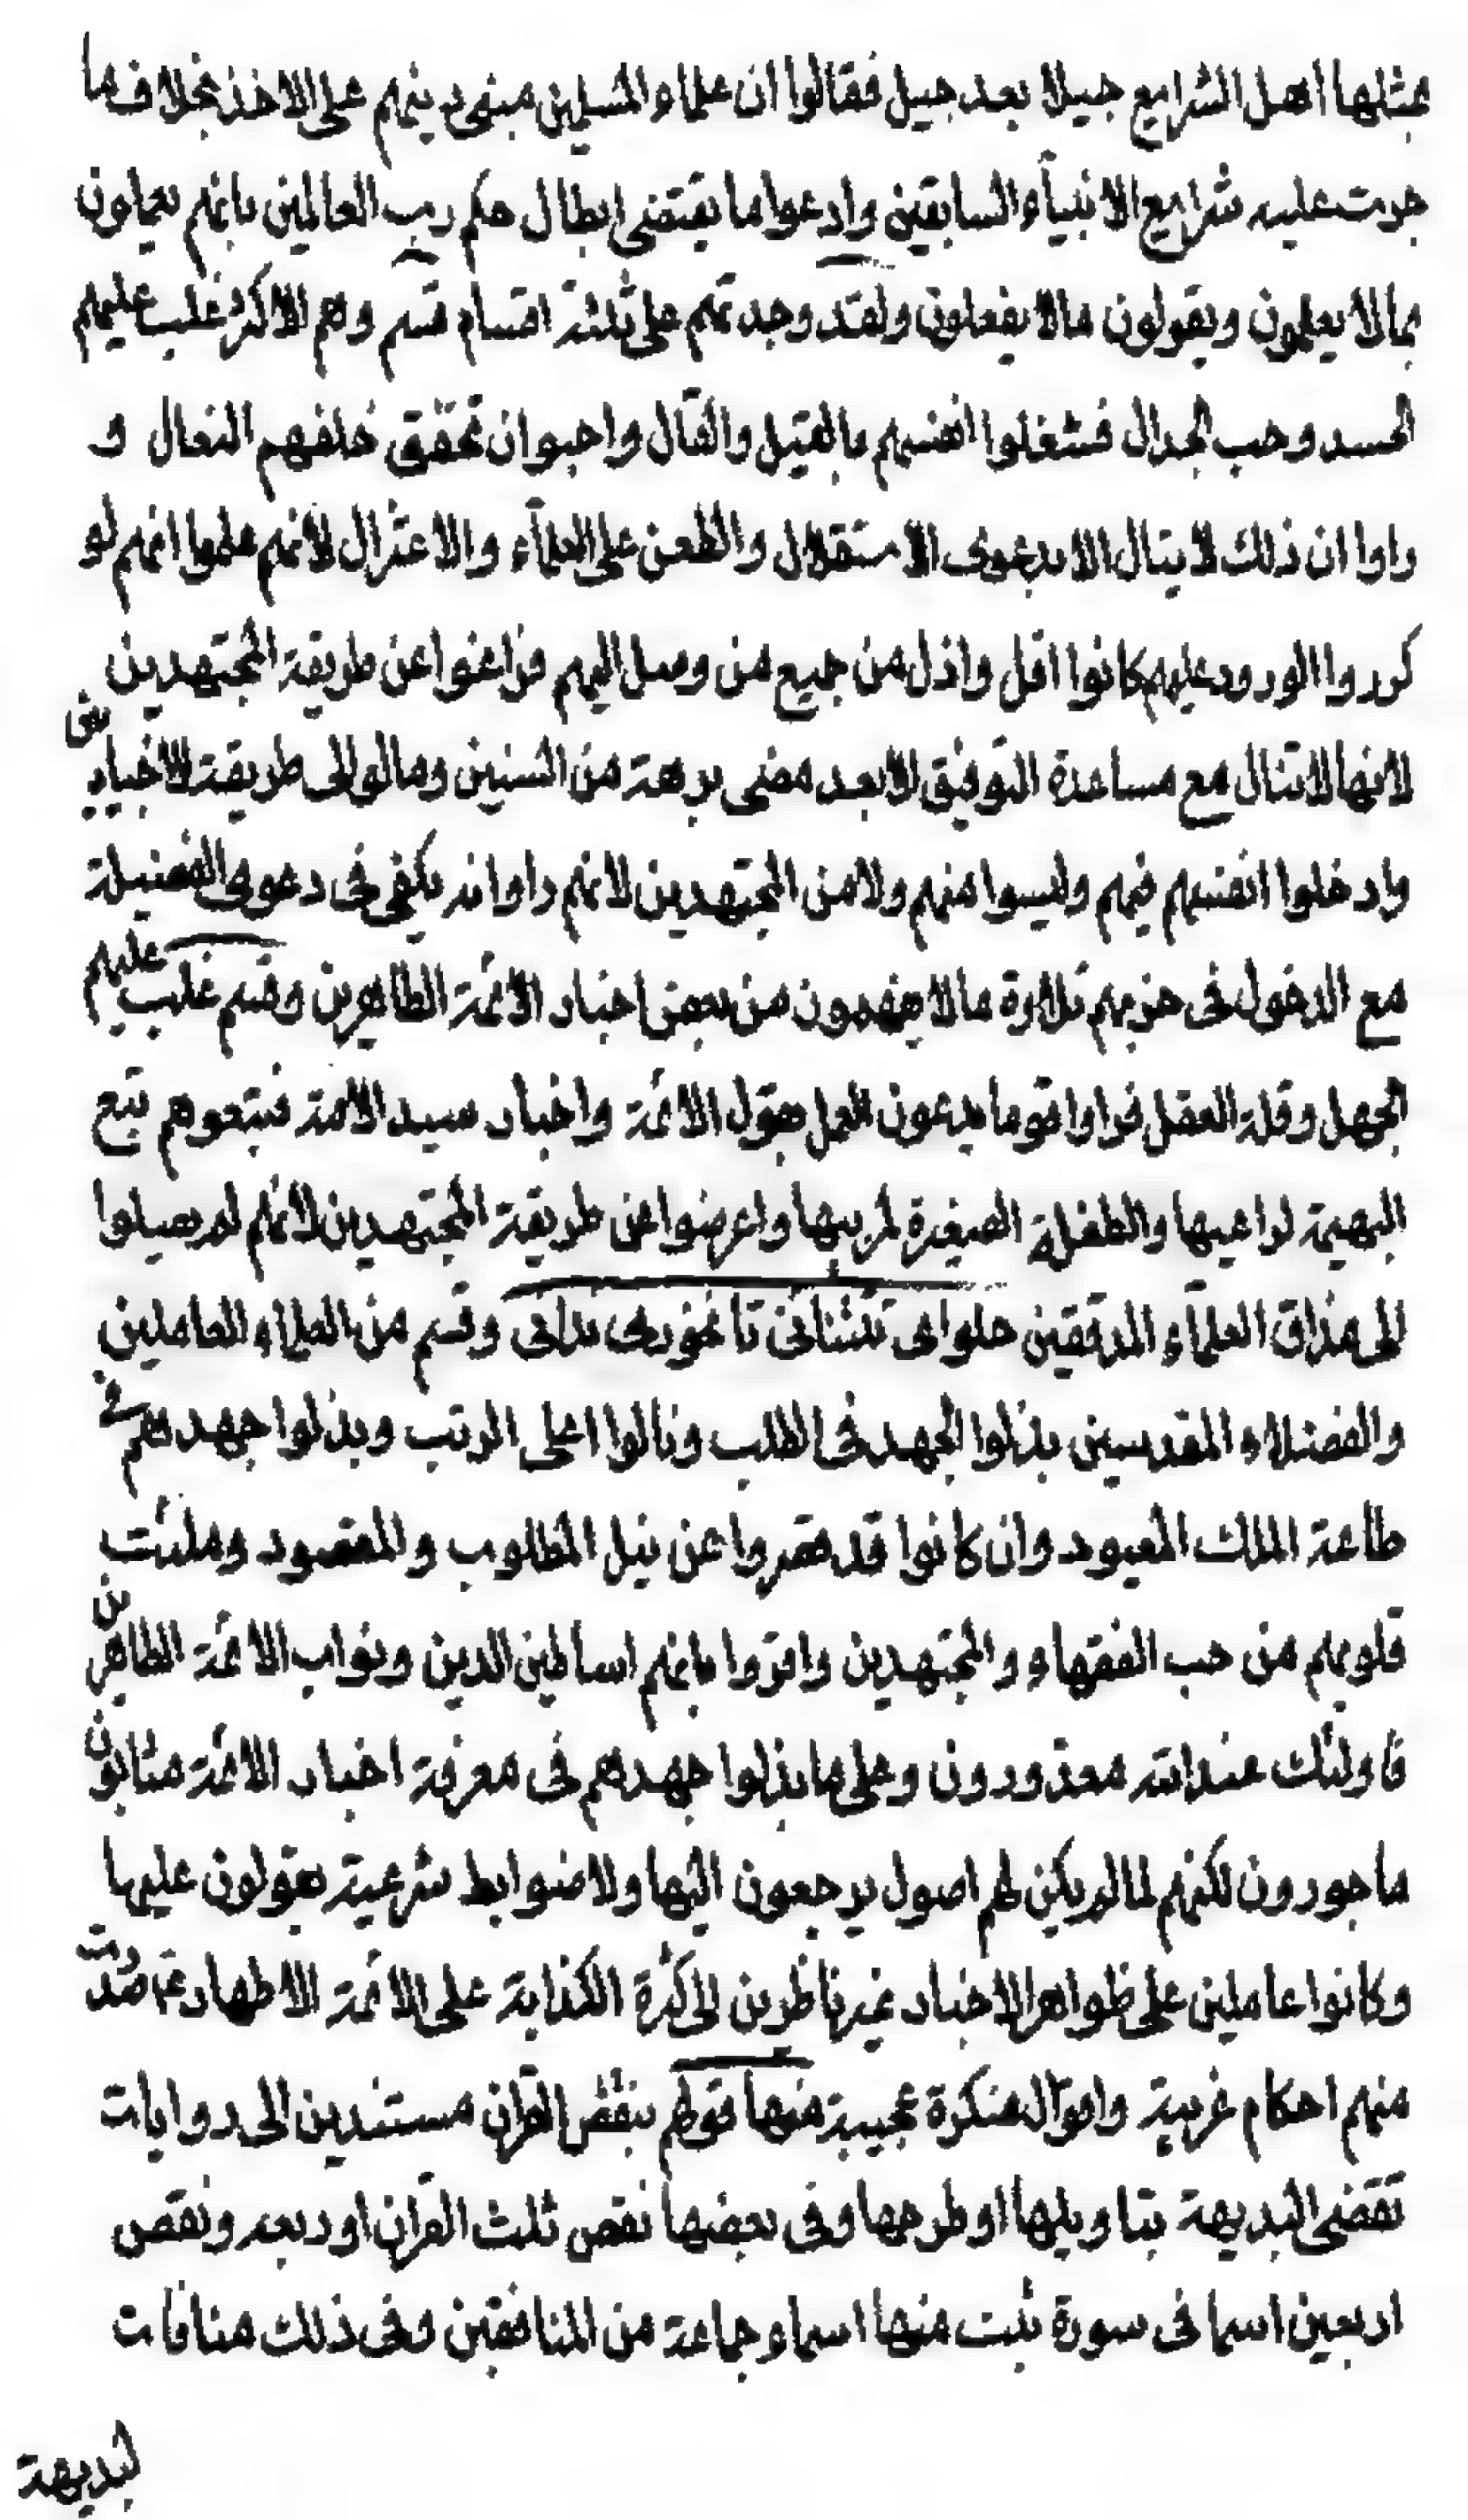 بمثلها اهل الشرايع جيلا بعد جيل فقالوا ان علماء المسلمين مبنى دينهم على الاخذ بخلاف ما
جرت عليه شرايع الانبيآء السابقين وادعوا ما يقتضى ابطال حكم رب العالمين بانهم يعملون
بما لا يعلمون ويقولون مالا يفعلون ولقد وجدتهم على ثلثة اقسام قسم وهم الاكثر غلب عليهم
الحسد وحب الجدال فشغلوا انفسهم بالقيل والقال واحبوا ان تخفق خلفهم النعال و
راوا ان ذلك لا ينال الا بدعوى الاستقلال والطعن على العلمآء والاعتزال لانهم علموا انهم لو
كرروا الورود عليهم كانوا اقل واذل من جميع من وصل اليهم فزاغوا عن طريقة المجتهدين
لانها لا تنال مع مساعدة التوفيق الا بعد مضى برهة من السنين ومالوا الى طريقة الاخباريين
وادخلوا انفسهم فيهم وليسوا منهم ولا من المجتهدين لانهم راوا انه يكفى فى دعوى الفضيلة
مع الدخول فى حزبهم تلاوة مالا يفهمون من بعض اخبار الائمة الطاهرين وقسم غلب عليهم
الجهل وقلة العقل فراوا قوما يدعون العمل بقول الائمة واخبار سيد الامة فتبعوهم تبع
البهيمة لراعيها والطفلة الصغيرة لمربيها واعرضوا عن طريقة المجتهدين لانهم لم يصلوا
الى مذاق العلمآء المدققين حلواى تنتنانى تا نخورى ندانى وقسم من العلماء العاملين
والفضلاء المقدسين بذلوا الجهد فى الطلب ونالوا اعلى الرتب وبذلوا جهدهم فى
طاعة الملك المعبود وان كانوا قد قصروا عن نيل المطلوب والمقصود وملئت
قلوبهم من حب الفقهاء والمجتهدين واقروا بانهم اساطين الدين ونواب الائمة الطاهرين
فاولئك عند الله معذورون وعلى ما بذلوا جهدهم فى معرفة اخبار الائمة مثابون
ماجورون لكنهم لما لم يكن لهم اصول يرجعون اليها ولا ضوابط شرعية يعولون عليها
وكانوا عاملين على ظواهر الاخبار غير ناظرين الى كثرة الكذابة على الائمة الاطهار ع صدرت
منهم احكام غريبة واقوال منكرة عجيبة منها قولهم بنقض القران مستندين الى روايات
تقضى البديهة بتاويلها او طرحها وفى بعضها نقص ثلث القران او ربعه ونقص
اربعين اسما فى سورة تبت منها اسماء جماعة من المنافقين وفى ذلك منافات
لبديهة